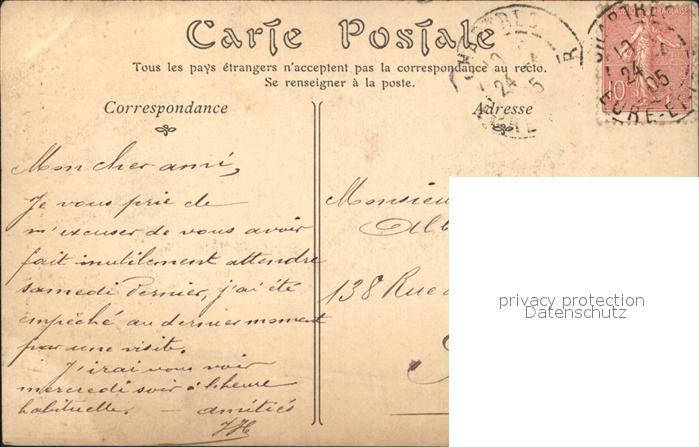 Carte Postale
Tous les pays étrangers n'acceptent pas la correspondance au recto.
Se renseigner à la poste.
Correspondance
Adresse
CHARTRES
24
05
EURE-ET
10
Mon cher ami,
Je vous prie de
m'excuser de vous avoir
fait inutilement attendre
samedi dernier, j'ai été
empêché au dernier moment
par une visite.
J'irai vous voir
mercredi soir à l'heure
habituelle. — amitiés
Monsieur
138 Rue
privacy protection
Datenschutz